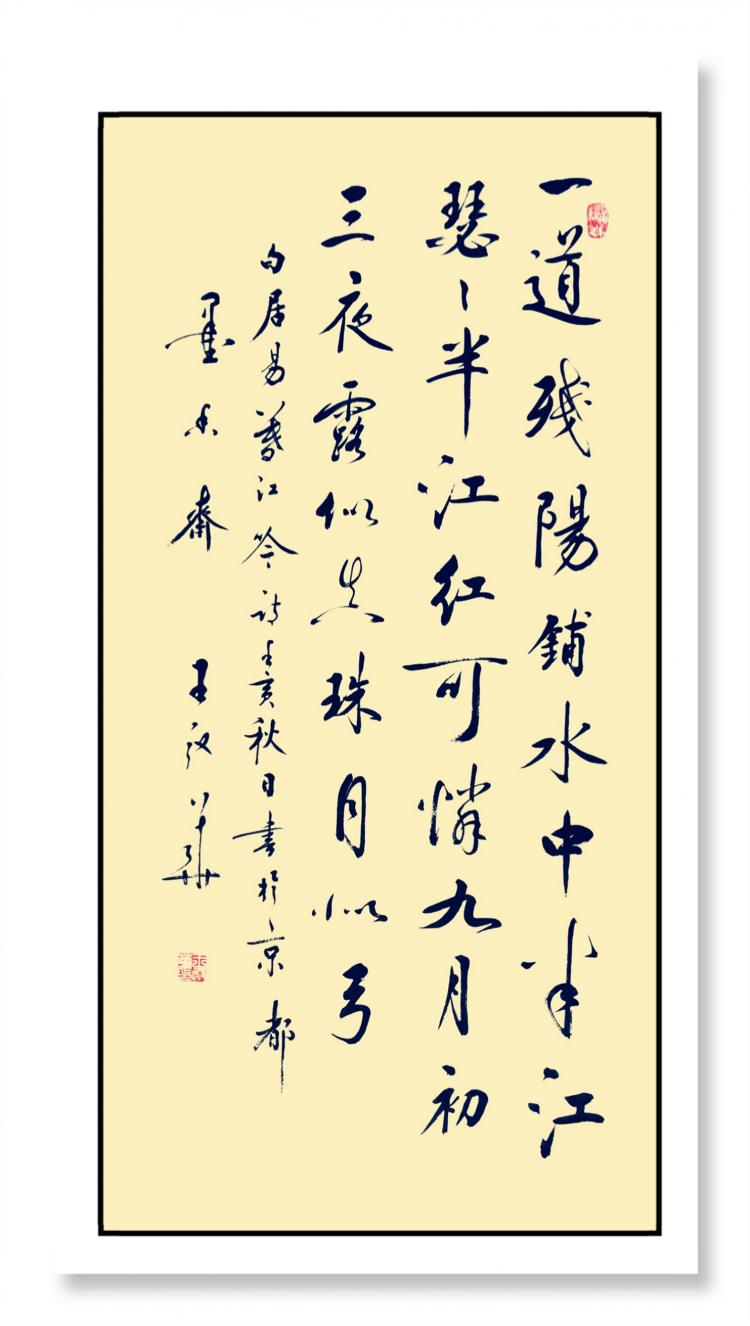 一道残陽鋪水中半江
瑟々半江紅可憐九月初
三夜露似真珠月似弓
白居易暮江吟詩亥秋日書於京都
墨香齋 王華